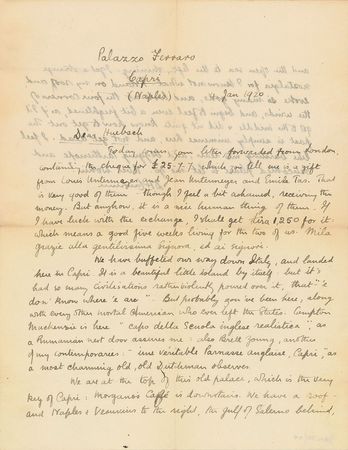 Palazzo Ferraro
Capri
(Naples) Jan 1920
Dear Huebsch
Today came your letter forwarded from London,
containing the cheque for £25.7.7, which you tell me is a gift
from Louis Untermeyer and Jean Untermeyer and Emile Tas. That
is very good of them – though I feel a bit ashamed, receiving the
money. But anyhow, it is a nice human thing of them. If
I have luck with the exchange, I shall get lira 1,250 for it,
which means a good five weeks living for the two of us. Mila
grazie alla gentilissima Signora, ed ai signori.
We have buffeted our way down Italy, and landed
here in Capri. It is a beautiful little island by itself but it's
had so many civilisations rather violently poured over it, that "'e
don' know where 'e are". But probably you've been here, along
with every other mortal American who ever left the States. Compton
Mackenzie is here "capo della Scuola inglese realistica", as
a Rumanian next door assures me: also Brett Young, another
of my contemporaries: – "une veritable Parnasse anglaise, Capri," as
a most charming old, old Dutchman observes.
We are at the top of this old palace, which is the very
key of Capri: Morgano's Caffe is downstairs. We have a roof –
and Naples & Vesuvius to the right, the gulf of Salerno behind,